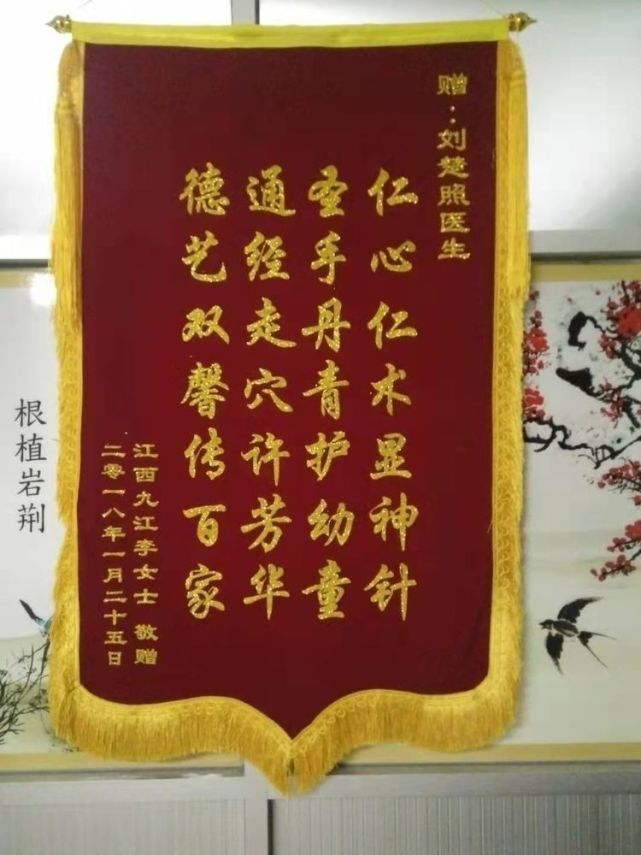 赠：刘楚照医生
仁心仁术显神针
圣手丹青护幼童
通经走穴许芳华
德艺双馨传百家
江西九江李女士 敬赠
二零一八年一月二十五日
根植岩荆